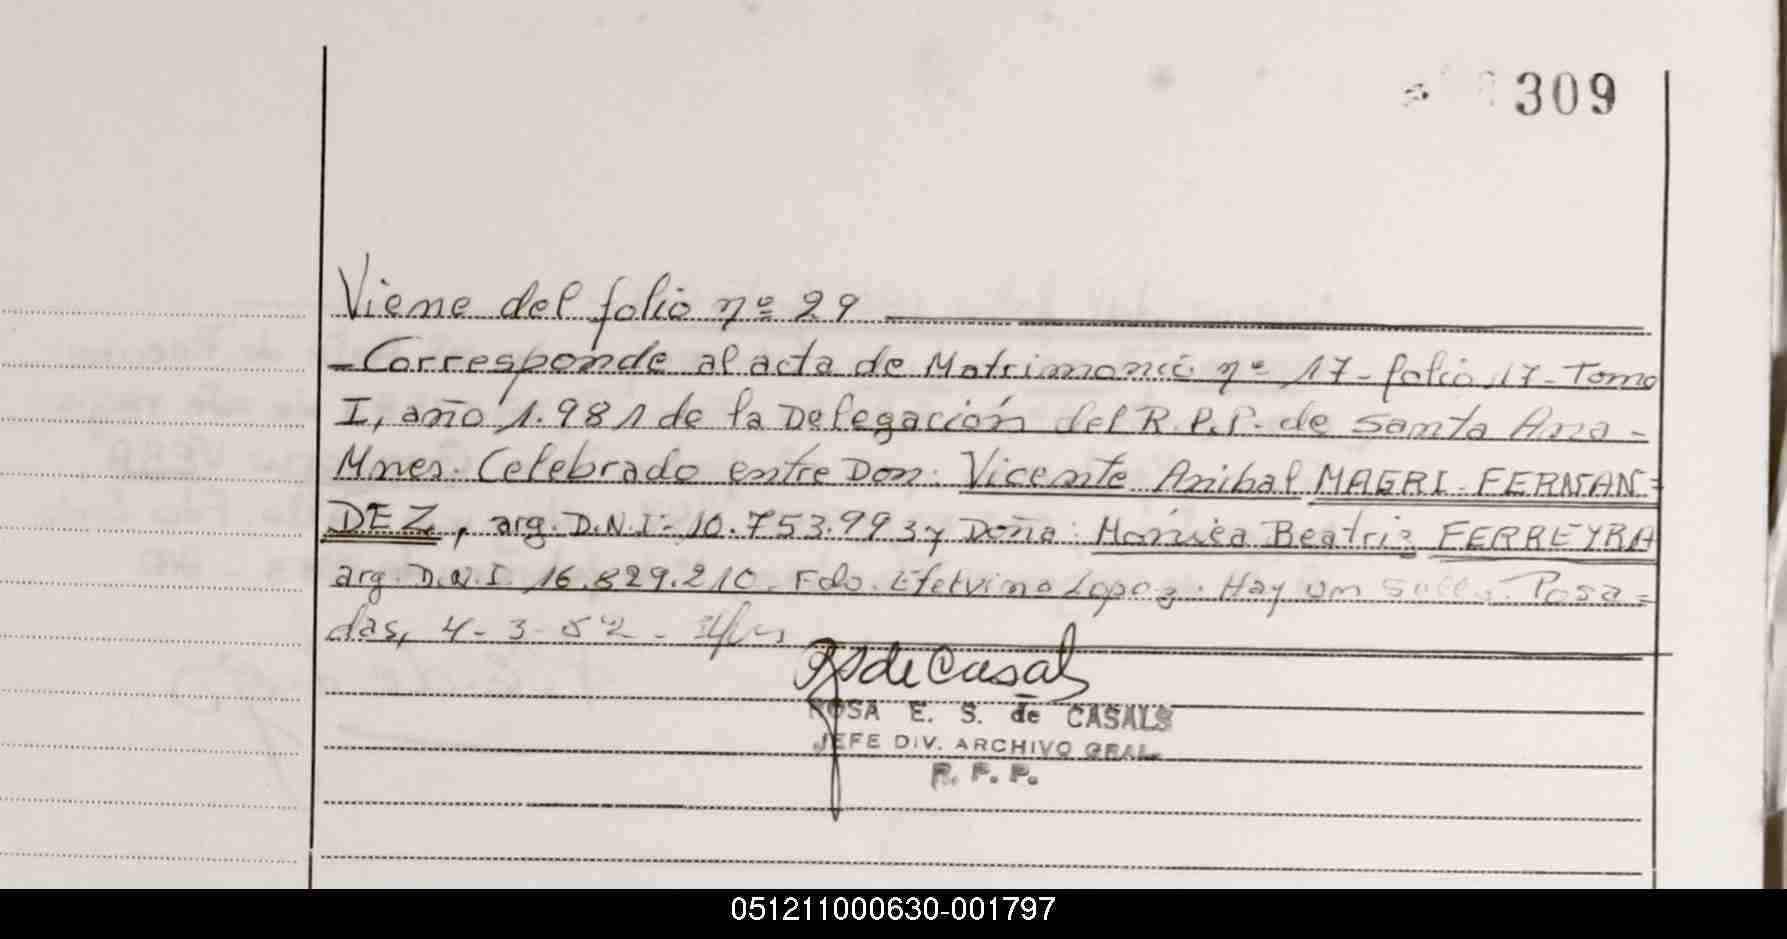 309
Viene del folio nº 29
-Corresponde al acta de Matrimonio nº 17- folio 17- Tomo
I, año 1.981 de la Delegación del R.P.P. de Santa Ana-
Mnes. Celebrado entre Don: Vicente Anibal MAGRI FERNAN=
DEZ, arg. D.N.I- 10.753.993 y Doña: Monica Beatriz FERREYRA
arg. D.N.I. 16.829.210. Fdo. Etelvina Lopez. Hay un sello. Posa=
das, 4-3-82-
ROSA E. S. de CASALS
JEFE DIV. ARCHIVO GRAL.
R. P. P.
051211000630-001797